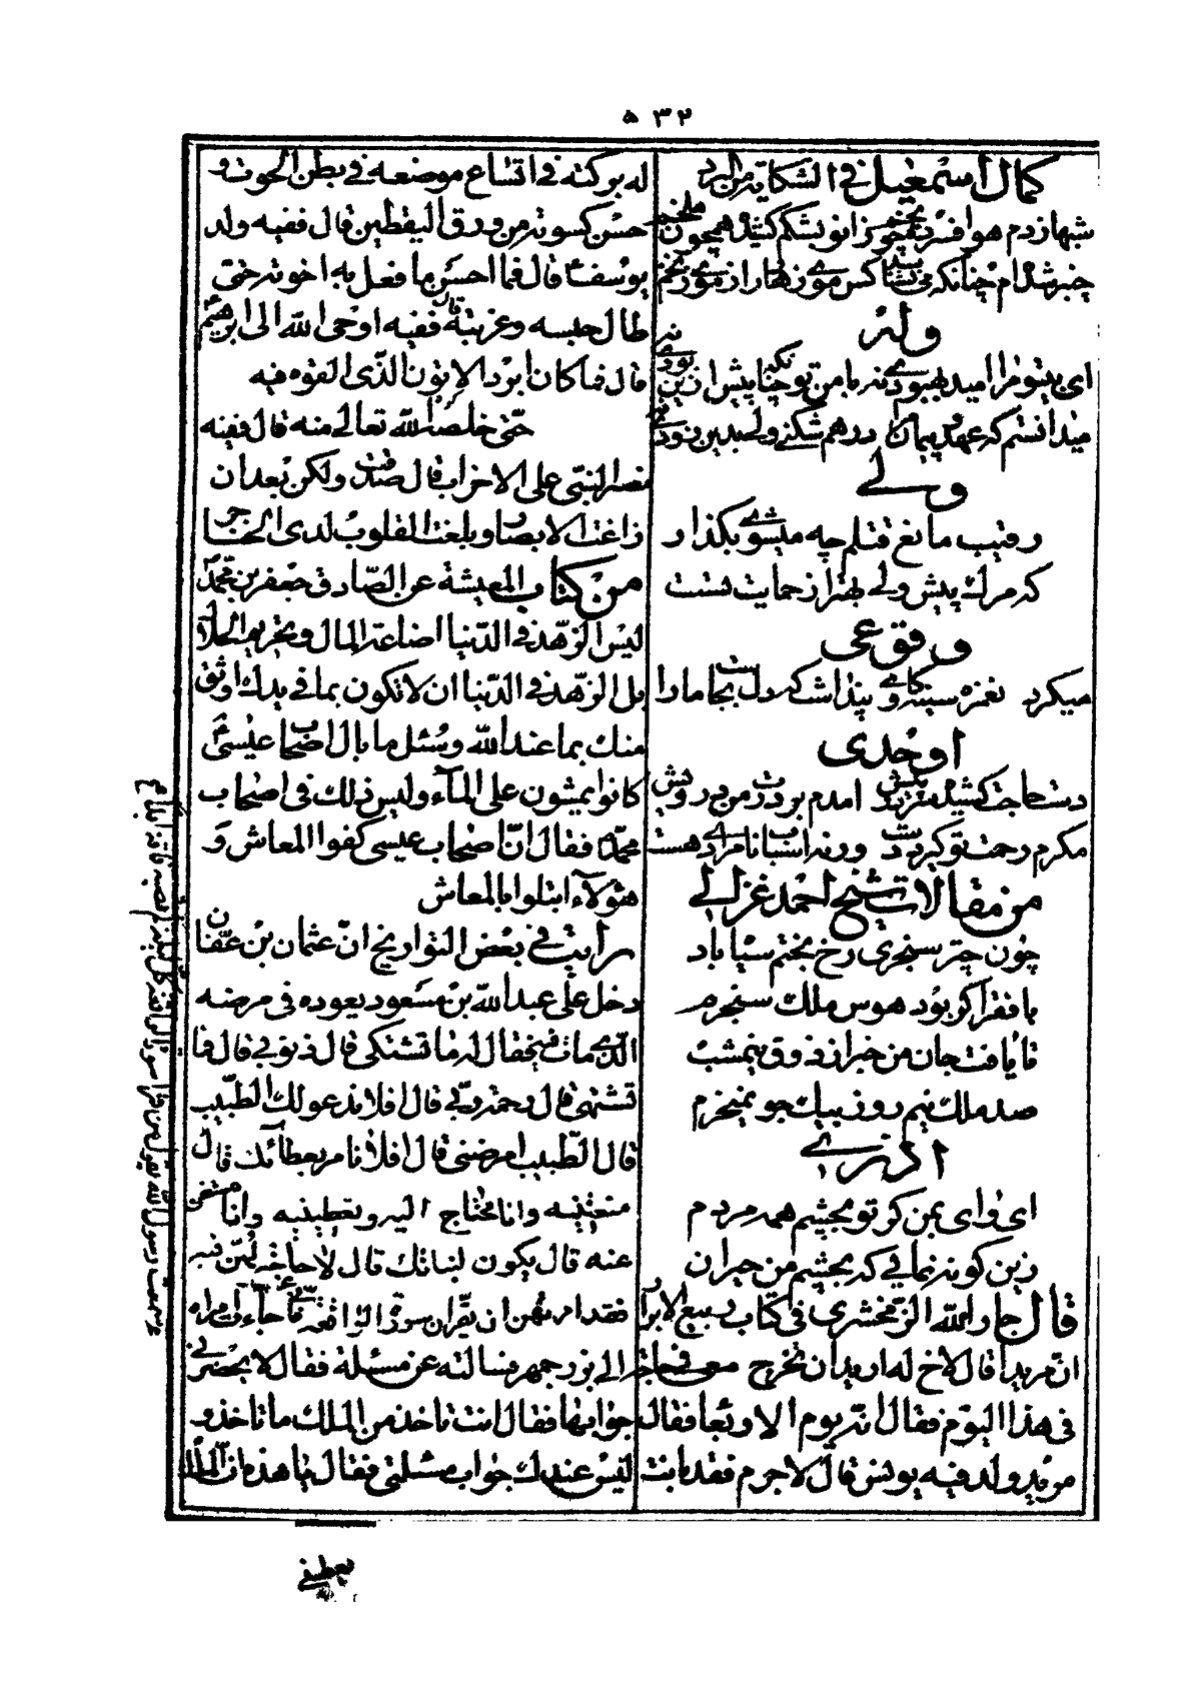 ۵۳۲
كمال اسمعيل فى الشكاية من البرد
شبها ز دم هوا فسرديم چو يخ زانو بشكم كشيده همچون ملخم
چنبر شده‌ام چنانكه مى نشناسد كس موى زهار از موى زنخم
وله
اى بيتو مرا اميد بهبودى نه با من تو چنانكه پيش ازين بودى نه
ميدانستم كه عهد و پيمان مرا در هم شكنى ولى بدين زودى نه
ولى
رقيب مانع قتلم چه ميشوى بگذار
كه مرگ پيش ولى بهتر از حمايت تست
وقوعى
ميكرد نغمزه سينه كاوى و پنداشت كه دل بجاست ما را
اوحدى
دست حاجت كشيده سر در پيش آمدم بر درت من درويش
مكرم رحمت تو گيرد دست ور نه اسباب نامرادى هست
من مقالات شيخ احمد غزالى
چون چتر سنجرى رخ بختم سياه باد
با فقر اگر بود هوس ملك سنجرم
تا يافت جان من خبر از ذوق نيمشب
صد ملك نيمروز بيك جو نميخرم
آذرى
اى واى بمن گر تو بچشم همه مردم
زين گونه نمائى كه بچشم من حيران
قال جار الله الزمخشرى فى كتاب ربيع الابرار
ان مريدا قال لاخ له اريد ان تخرج معى فى حاجة
فى هذا اليوم فقال انه يوم الاربعا فقال
مزيد ولد فيه يونس قال لاجرم فقد بانت
له بركته فى اتساع موضعه فى بطن الحوت و
حسن كسوته من ورق اليقطين قال ففيه ولد
يوسف قال فما احسن ما فعل به اخوته حتى
طال حبسه وغربته قال ففيه اوحى الله الى ابرهيم
قال فما كان ابرد الاتون الذى القوه فيه
حتى خلصه الله تعالى منه قال ففيه
نصر النبى على الاحزاب قال صدقت ولكن بعد ان
زاغت الابصار وبلغت القلوب لدى الحناجر
من كتاب المعيشة عن الصادق جعفر بن محمد
ليس الزهد فى الدنيا اضاعة المال وتحريم الحلال
بل الزهد فى الدنيا ان لا تكون بما فى يدك اوثق
منك بما عند الله وسئل ما بال اصحاب عيسى
كانوا يمشون على الماء وليس ذلك فى اصحاب
محمد فقال ان اصحاب عيسى كفوا المعاش و
هؤلاء ابتلوا بالمعاش
رايت فى بعض التواريخ ان عثمان بن عفان
دخل على عبد الله بن مسعود يعوده فى مرضه
الذى مات فيه فقال له ما تشتكى قال ذنوبى قال فما
تشتهى قال رحمة ربى قال افلا ندعو لك الطبيب
قال الطبيب امرضنى قال افلا نامر بعطائك قال
منعتنيه وانا محتاج اليه وتعطينيه وانا مستغن
عنه قال يكون لبناتك قال لا حاجة لهن فيه
فقد امرتهن ان يقران سورة الواقعة جاءت امراة
الى بزرجمهر فسالته عن مسئلة فقال لا يحضرنى
جوابها فقالت انت تاخذ من الملك ما تاخذ و
ليس عندك جواب مسئلتى فقال يا هذه ان الملك
يعطينى